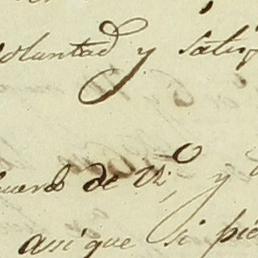 voluntad y satisf
de V.º, y
asi que si pie